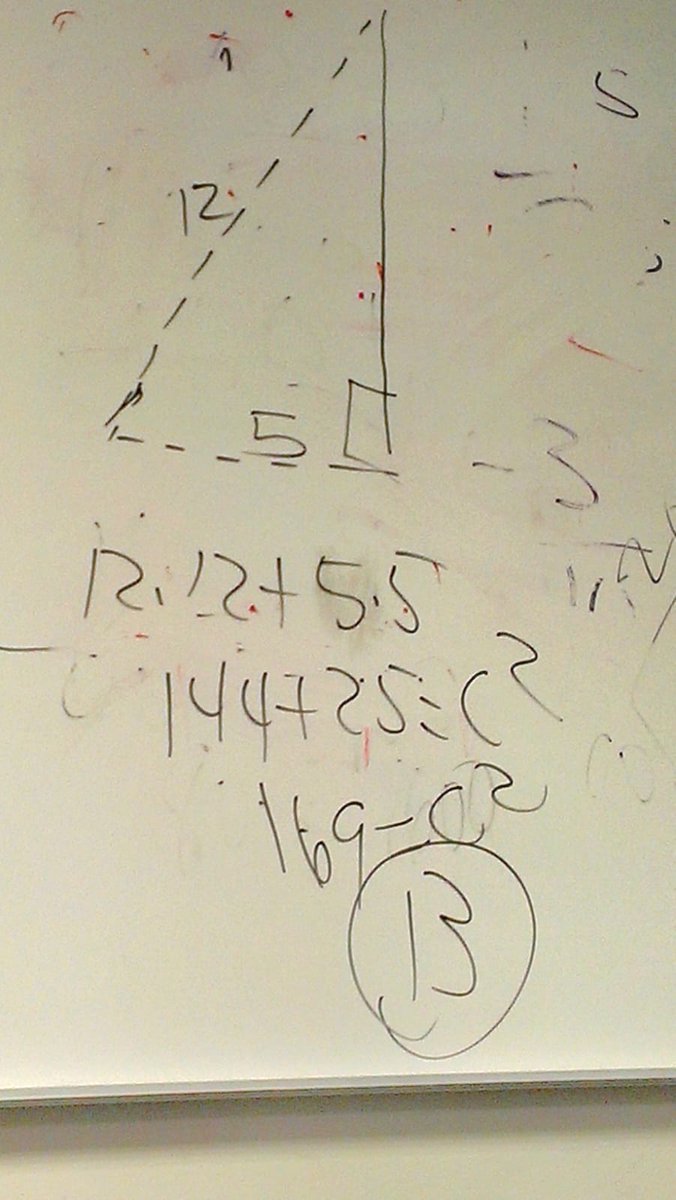 12
5
12.12+5.5
144+25=c²
169-c²
13
S
-3